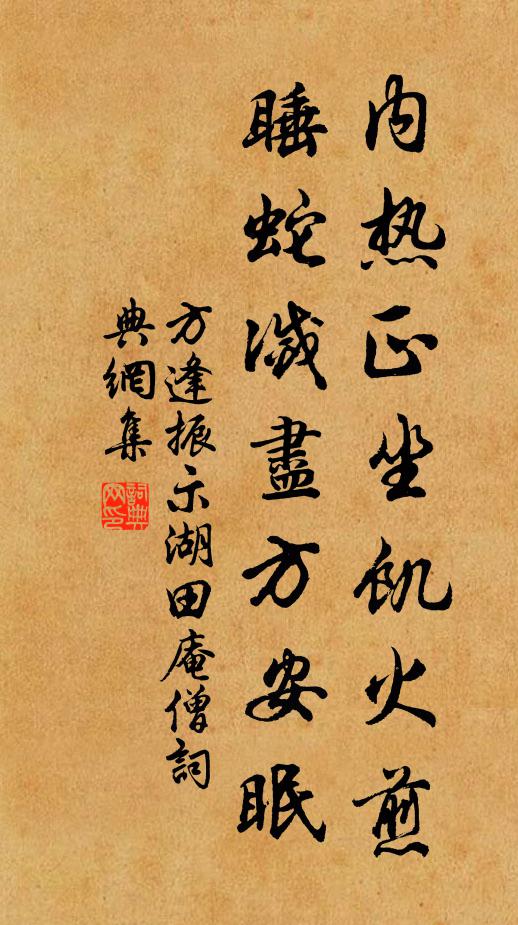 内热正坐飢火煎
睡蛇滅盡方安眠
方逢振示湖田庵僧詞
典網集
詞典
网印